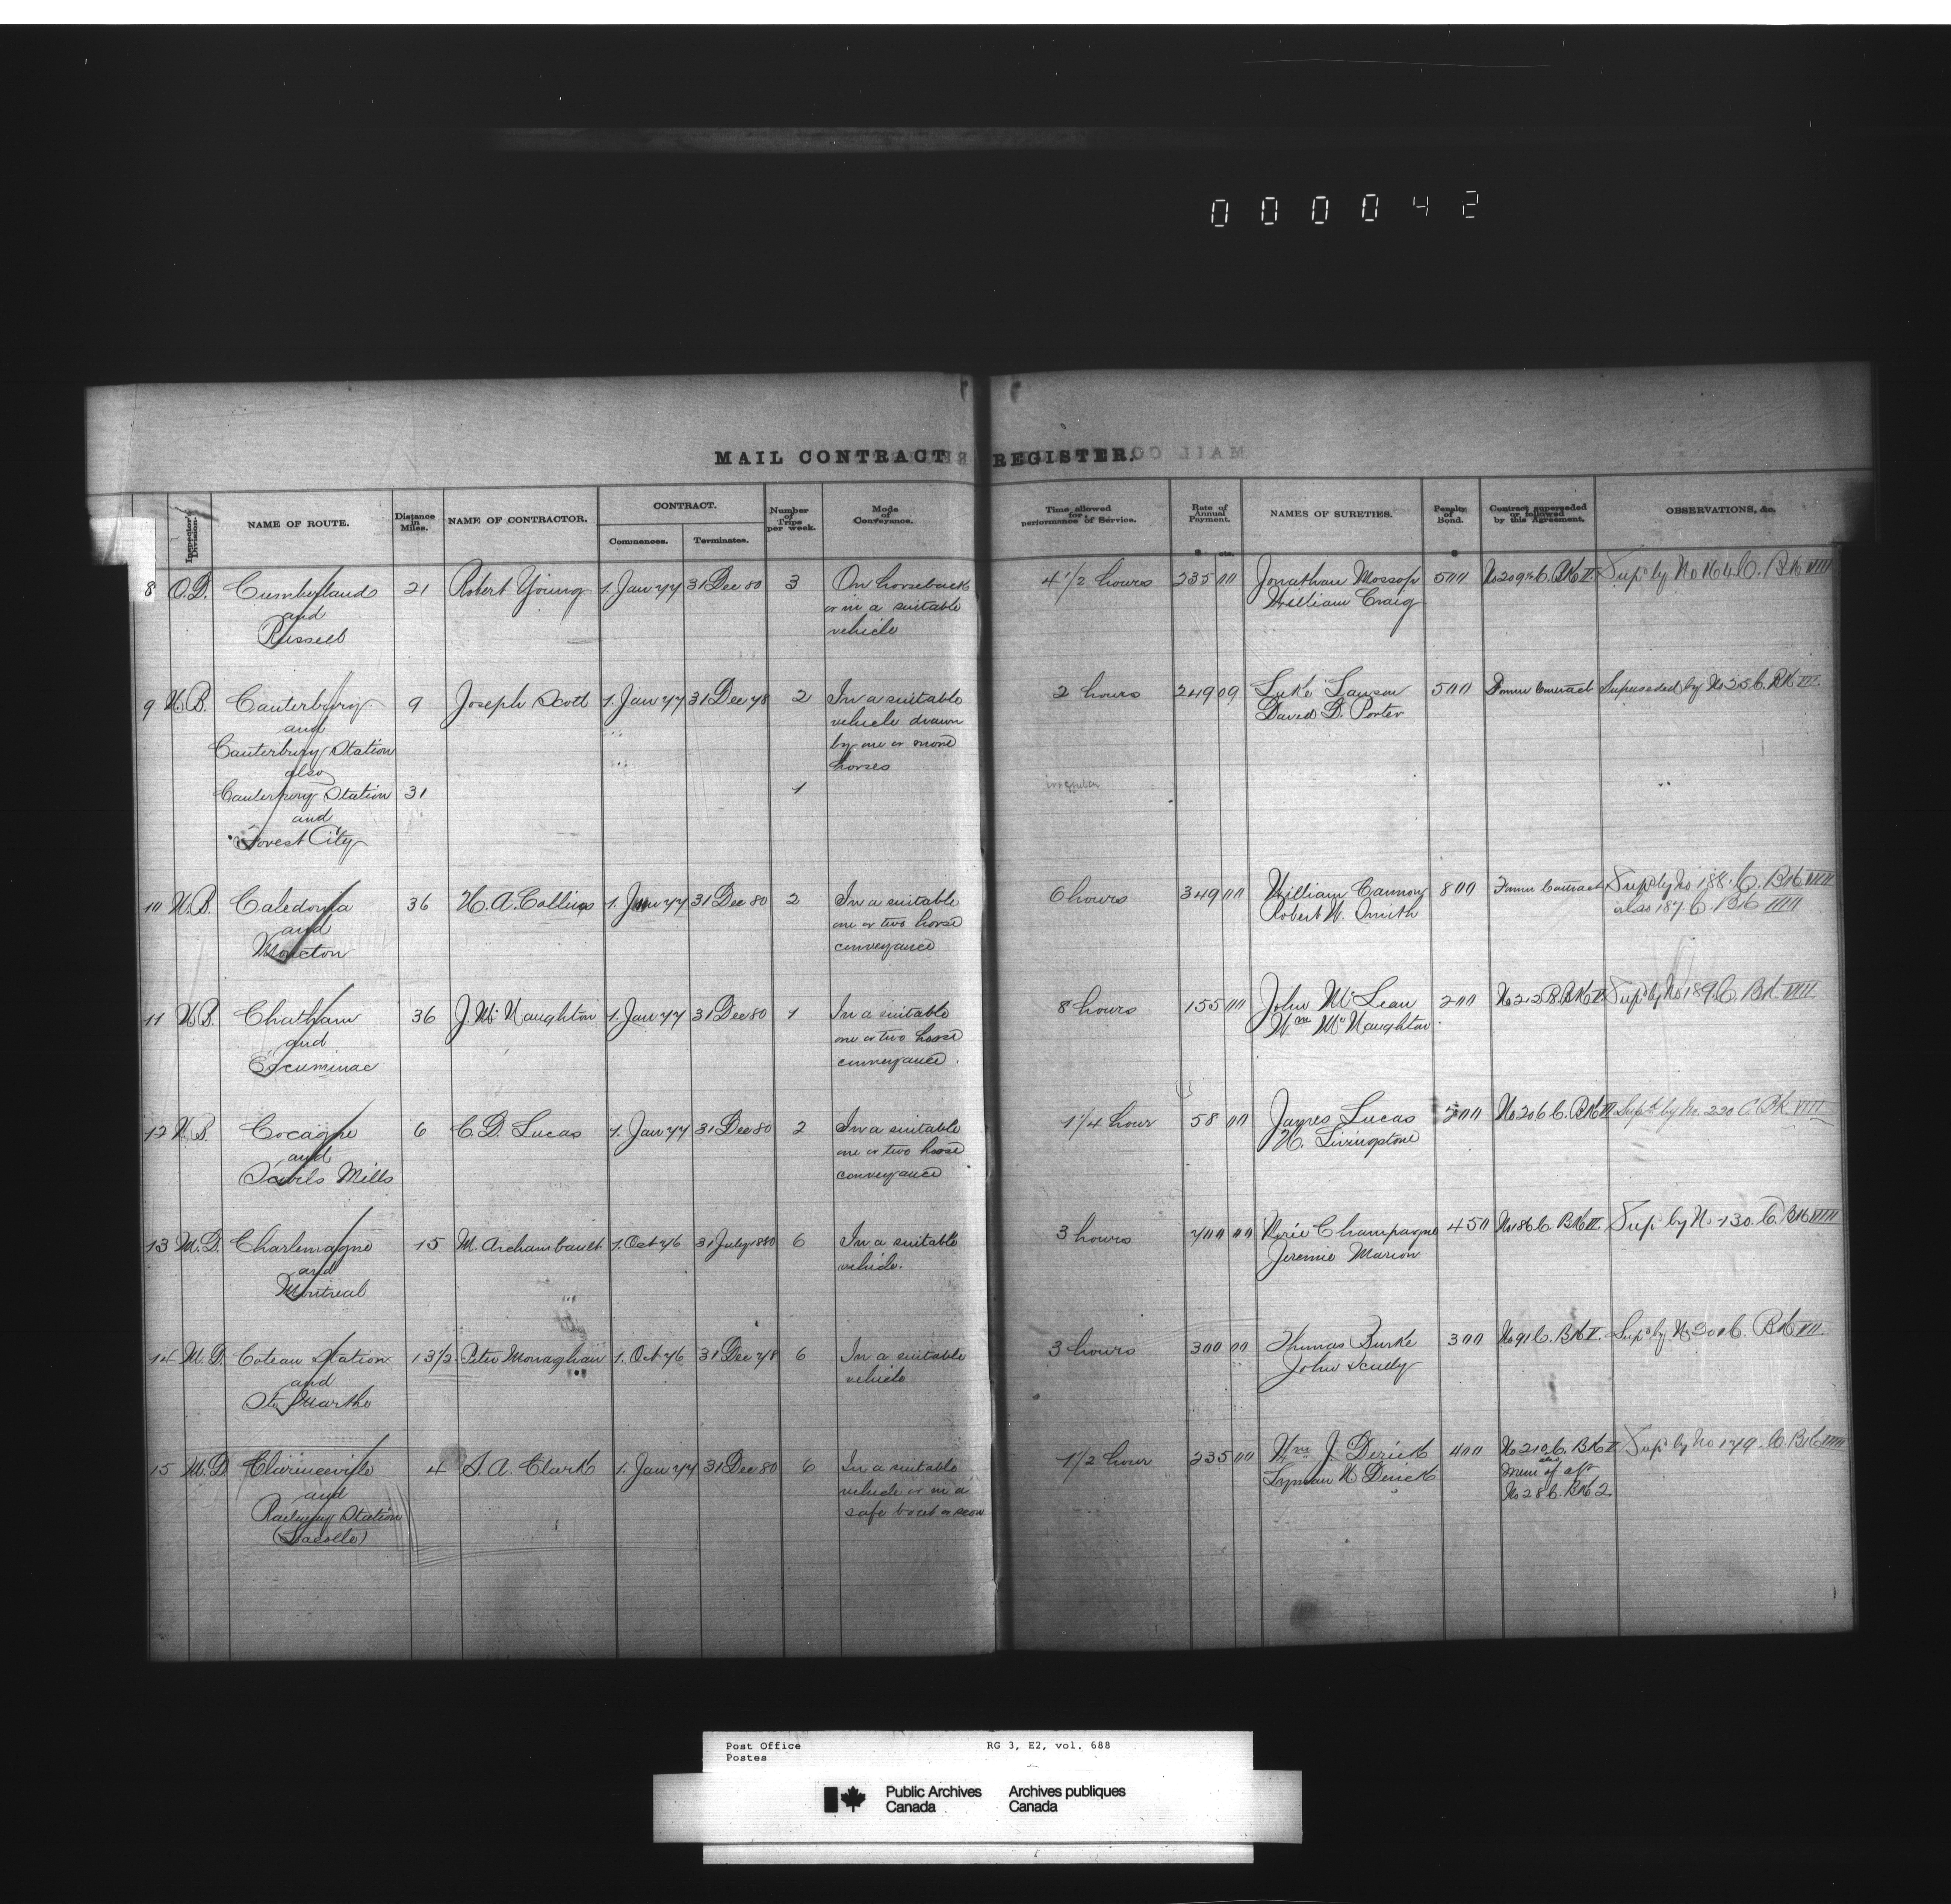 000042
MAIL CONTRACT REGISTER.
Inspector's Division. NAME OF ROUTE. Distance in Miles. NAME OF CONTRACTOR. CONTRACT. Commences. Terminates. Number of Trips per week. Mode of Conveyance. Time allowed for performance of Service. Rate of Annual Payment. $ cts. NAMES OF SURETIES. Penalty of Bond. $ Contract superseded or followed by this Agreement. OBSERVATIONS, &c.
8 O.D. Cumberland 21 Robert Young 1. Jan 77 31 Dec 80 3 On horseback 4 1/2 hours 235 00 Jonathan Mossop 500 No 209 C. BK II. Supd by No 164 C. BK VIII
and or in a suitable William Craig
Russell vehicle
9 N.B. Canterbury 9 Joseph Scott 1. Jan 77 31 Dec 78 2 In a suitable 2 hours 249 09 Luke Lawson 500 Former Contract Superseded by No 25 C. BK VII.
and vehicle drawn David D. Porter
Canterbury Station by one or more
also horses
Canterbury Station 31 1 irregular
and
Forest City
10 N.B. Caledonia 36 H. A. Collins 1. Jan 77 31 Dec 80 2 In a suitable 6 hours 349 00 William Cannon 800 Former Contract Supd by No 188. C. BK VIII
and one or two horse Robert N. Smith also 187 C. BK VIII
Moncton conveyance
11 N.B. Chatham 36 J. McNaughton 1. Jan 77 31 Dec 80 1 In a suitable 8 hours 155 00 John McLean 200 No 212 B. BK II Supd by No 189. C. BK VIII
and one or two horse Wm McNaughton
Escuminac conveyance.
12 N.B. Cocagne 6 C. D. Lucas 1. Jan 77 31 Dec 80 2 In a suitable 1 1/4 hour 58 00 James Lucas 200 No 206 C. BK II Supd by No. 220 C. BK VIII
and one or two horse N. Livingstone
Mills conveyance
13 M.D. Charlemagne 15 M. Archambault 1. Oct 76 31 July 1880 6 In a suitable 3 hours 700 00 Champagne 450 No 186 C. BK II. Supd by No 130. C. BK VIII
and vehicle. Jeremie Marion
Montreal
14 M.D. Coteau Station 13 1/2 Peter Monaghan 1. Oct 76 31 Dec 78 6 In a suitable 3 hours 300 00 Thomas Burke 300 No 91 C. BK V. Supd by No 30 C. BK VII.
and vehicle John Scully
Ste Marthe
15 M.D. Clarenceville 4 S. A. Clark 1. Jan 77 31 Dec 80 6 In a suitable 1/2 hour 235 00 Wm J. Derick 400 No 210 C. BK II Supd by No 179. C. BK VIII
and vehicle or in a Lyman N. Derick also Mem of aft
Railway Station safe boat or scow No 28 C. BK 2
(Lacolle)
Post Office RG 3, E2, vol. 688
Postes
Public Archives Archives publiques
Canada Canada